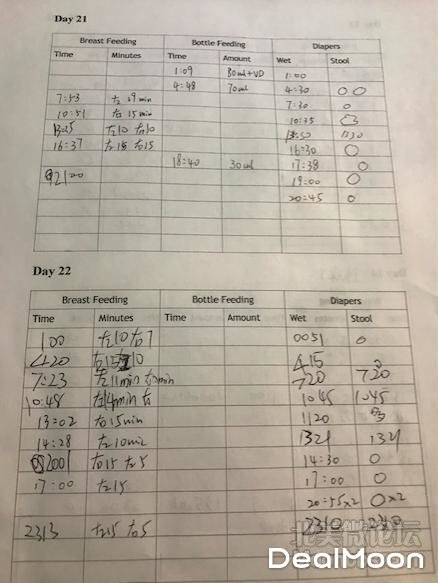 Day 21
Breast Feeding Bottle Feeding Diapers
Time Minutes Time Amount Wet Stool
1:09 80ml+VD 1:00
4:48 70ml 4:30 O O
7:53 左 19min 7:30 O
10:51 右 15min 10:35
左10 右10 1330
16:37 左15 右15 16:30 O
18:40 30ml 17:38 O
2100 19:00 O
20:45 O
Day 22
Breast Feeding Bottle Feeding Diapers
Time Minutes Time Amount Wet Stool
100 左10 右7 0051 O
420 右15 10 415
7:23 左11min 720 720
10:48 左14min 右 1045 1045
13:02 右15min 1120
14:28 左10min 1321 1321
2001 右15 左5 14:30 O
17:00 左15 17:00 O
20:55x2 Ox2
2313 左15 右5 2310 2310
北美微论坛
DealMoon